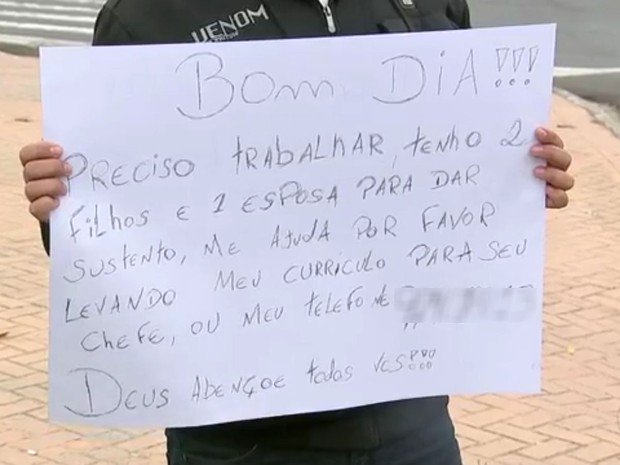 VENOM
BOM DIA!!!
PRECISO TRABALHAR, TENHO 2
FILHOS E 1 ESPOSA PARA DAR
SUSTENTO, ME AJUDA POR FAVOR
LEVANDO MEU CURRICULO PARA SEU
CHEFE, OU MEU TELEFONE
DEUS ABENÇOE TODOS VCS!!!